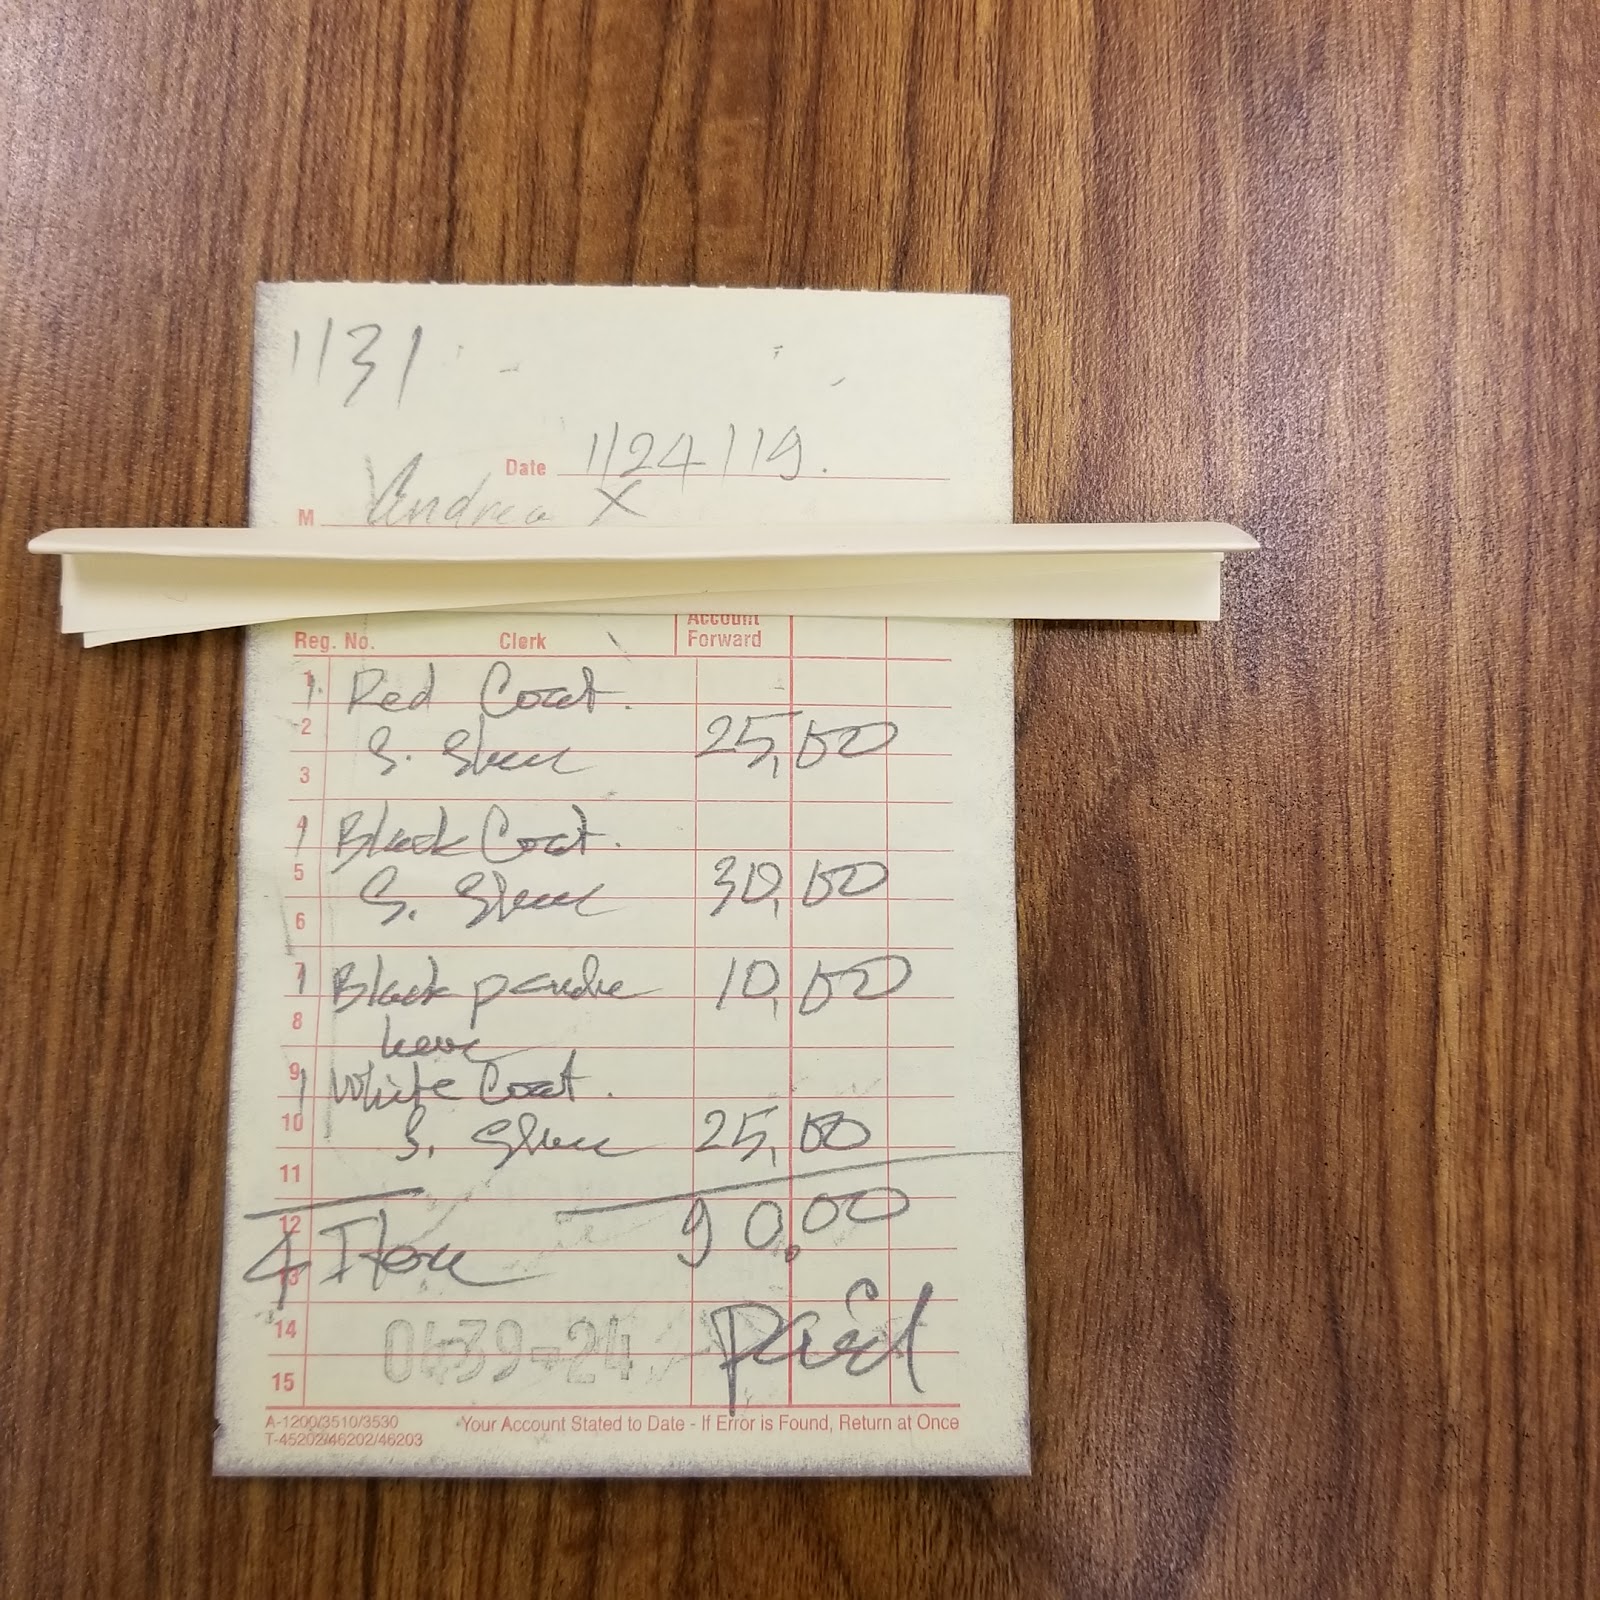 1/31
Date 1/24/19.
M Andrea X
Account
Reg. No. Clerk Forward
1 1 Red Coat.
2 S. Sleeve 25,00
3
4 1 Black Coat.
5 S. Sleeve 30,00
6
7 1 Black 10,00
8
9 1 White Coat.
10 S. Sleeve 25,00
11
12 90.00
13 4 Item
14 0439-24 Paid
15
A-1200/3510/3530 Your Account Stated to Date - If Error is Found, Return at Once
T-45202/46202/46203